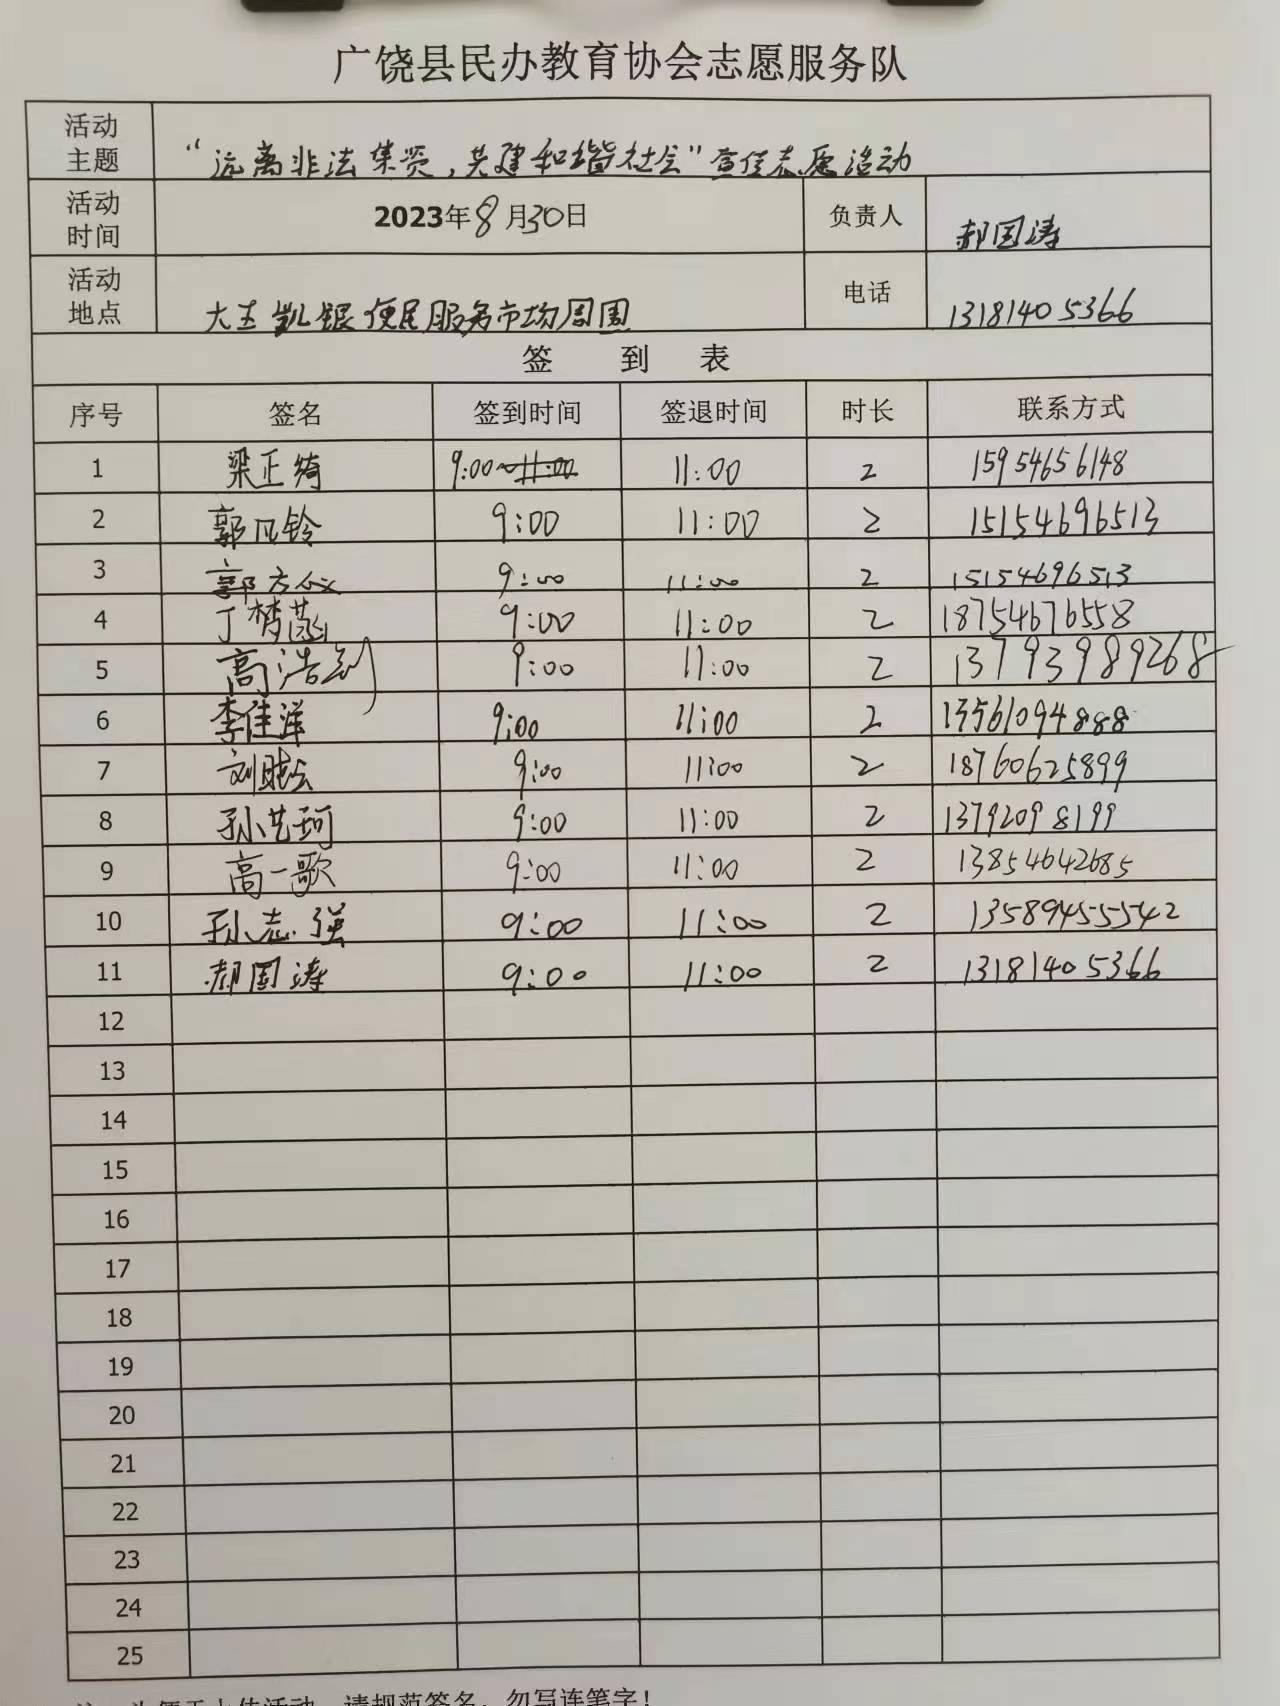 广饶县民办教育协会志愿服务队
活动主题 “远离非法集资，共建和谐社会”宣传志愿活动
活动时间 2023年8月30日 负责人 郝国涛
活动地点 大王凯银便民服务市场周围 电话 13181405366
签 到 表
序号 签名 签到时间 签退时间 时长 联系方式
1 梁正绮 9:00~11:00 11:00 2 15954656148
2 郭凡铃 9:00 11:00 2 15154696513
3 郭方仪 9:00 11:00 2 15154696513
4 丁梦菡 9:00 11:00 2 18754676558
5 高浩 9:00 11:00 2 13793989268
6 李佳洋 9:00 11:00 2 13561094888
7 刘 9:00 11:00 2 18760625899
8 孙艺珂 9:00 11:00 2 13792098199
9 高一歌 9:00 11:00 2 13854642685
10 孙志强 9:00 11:00 2 13589455542
11 郝国涛 9:00 11:00 2 13181405366
12
13
14
15
16
17
18
19
20
21
22
23
24
25
请规范签名，勿写连笔字！